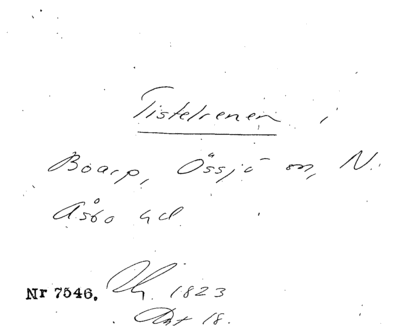 Tistelrenen i
Boarp, Össjö sn, N.
Åsbo hd
Nr 7546. 1823
18.